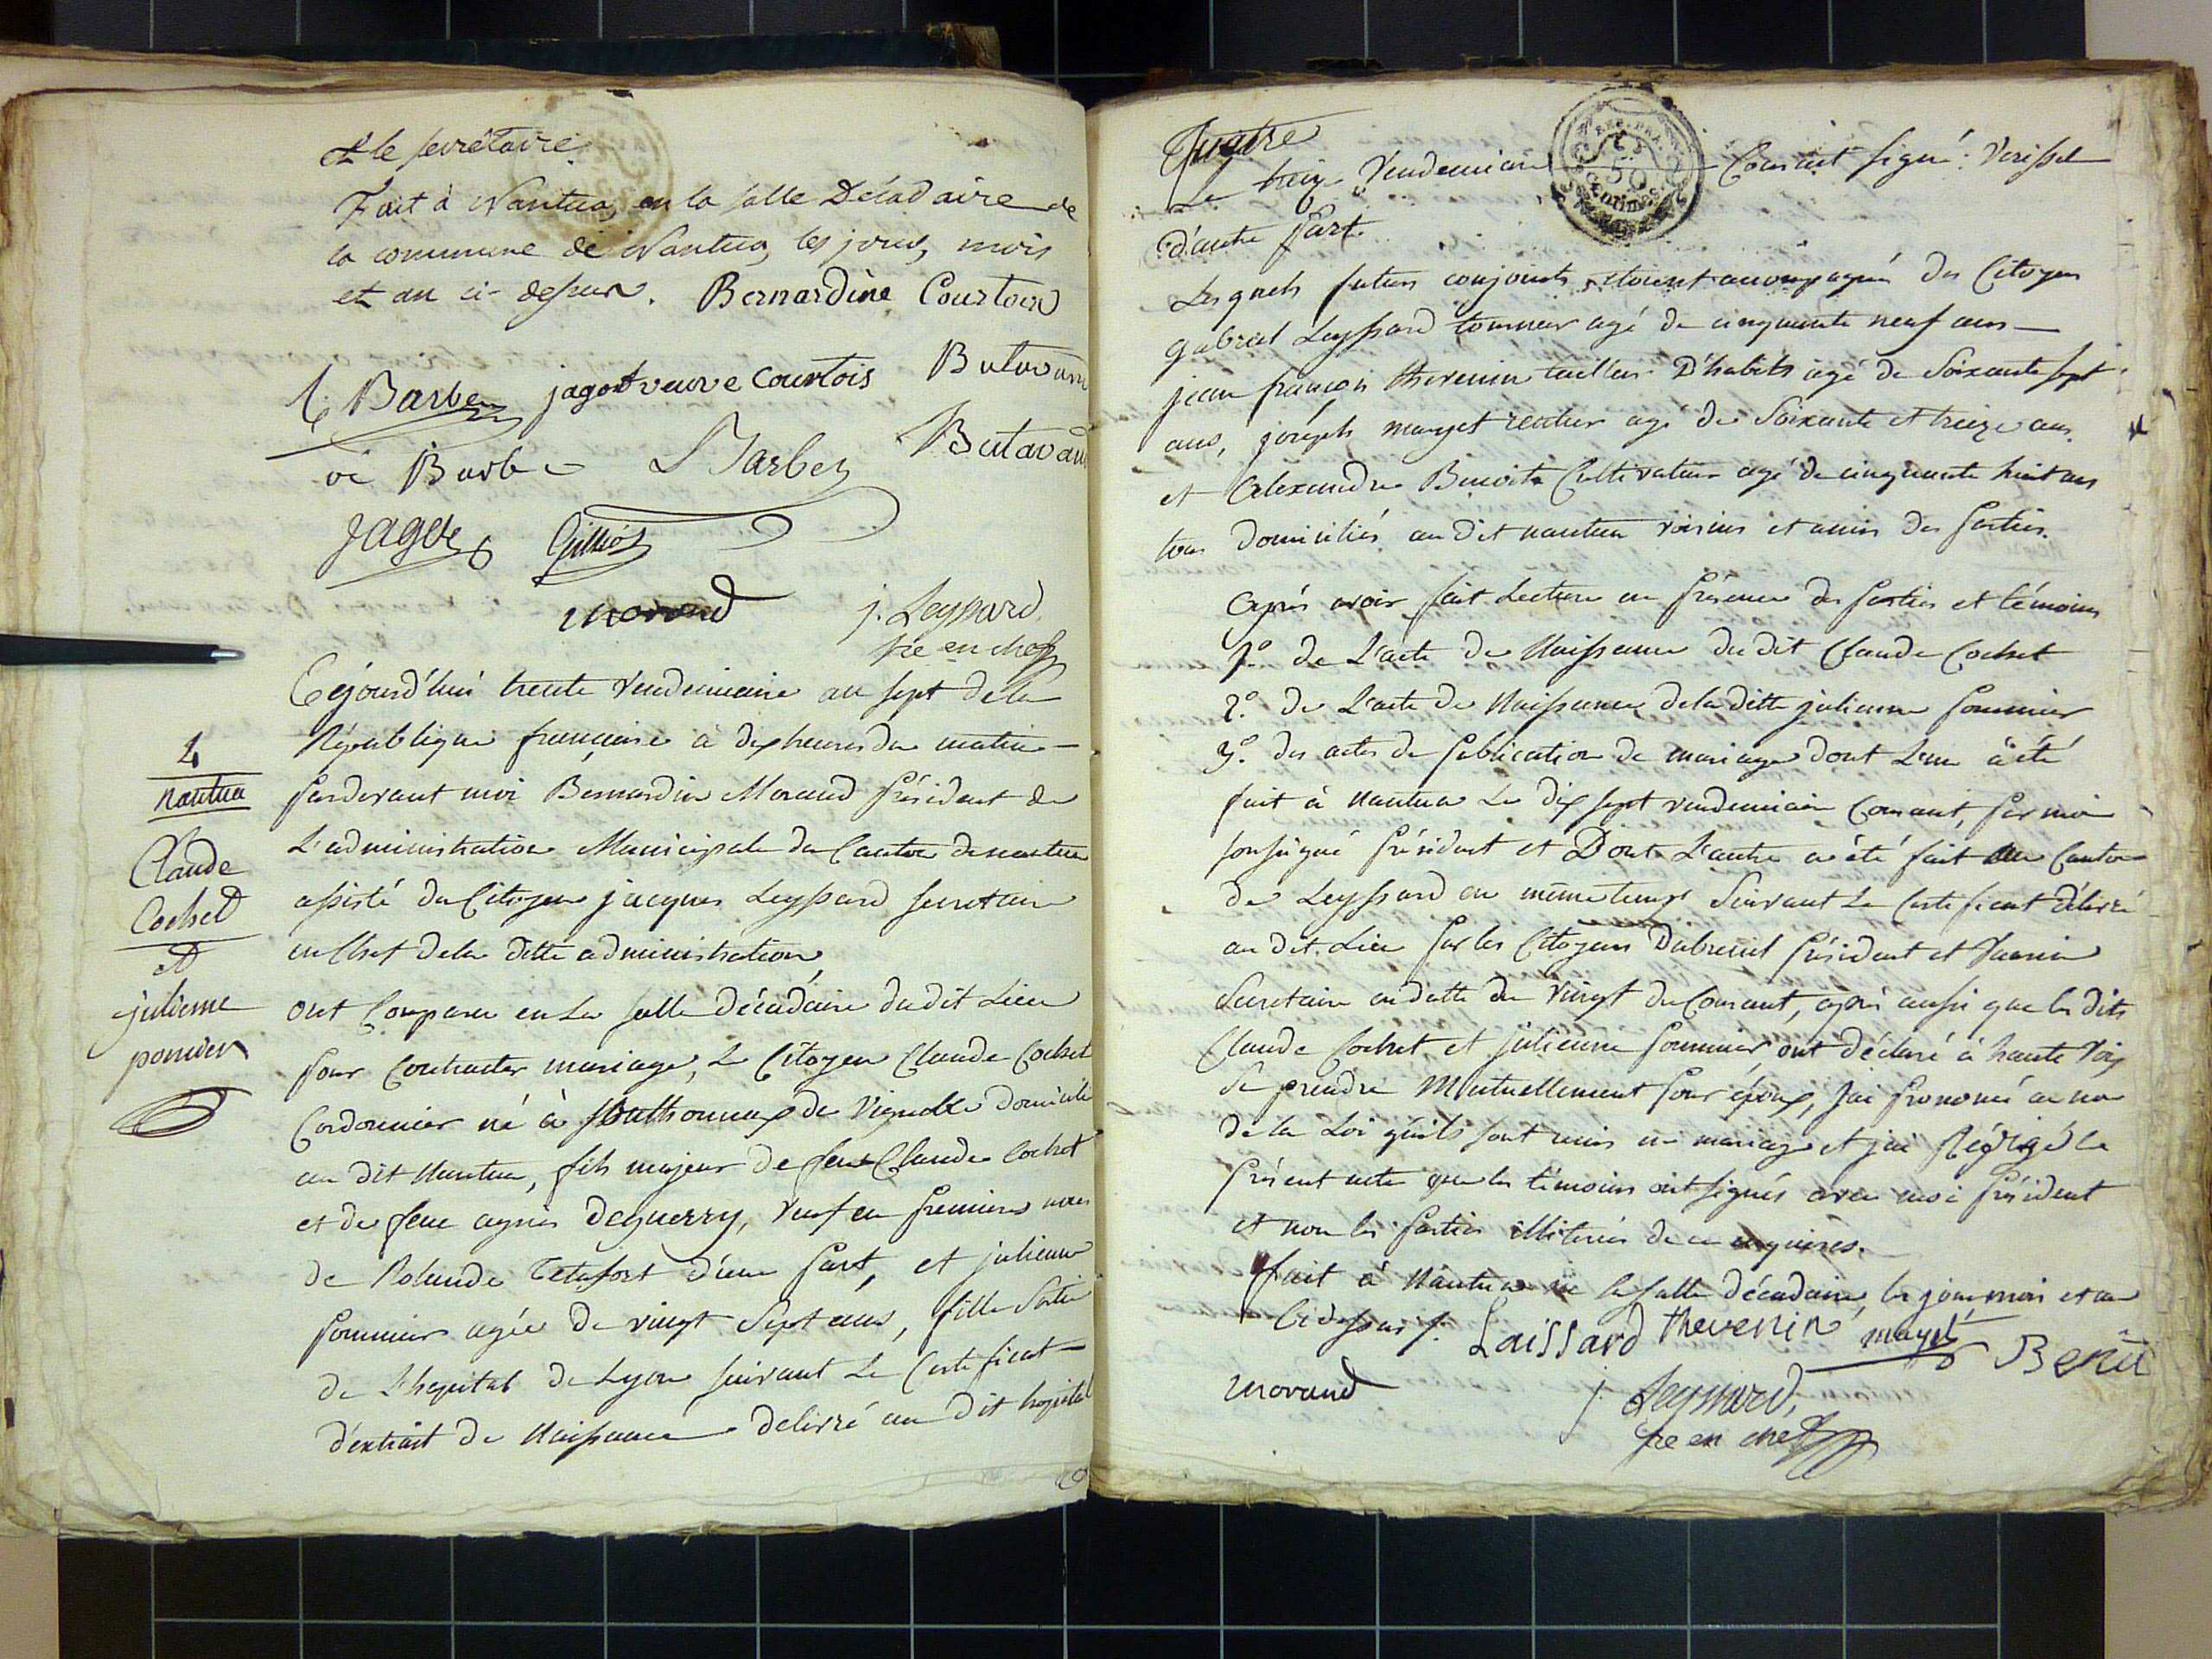 et le secrétaire.
Fait à Nantua, en la salle Décadaire de
la commune de Nantua, les jours, mois
et an ci-dessus. Bernardine Courtois
Barbe jagot veuve Courtois Butavant
Barbe Barbe Butavant
Jagot
morand j. Leyssard
sre en chef
Cejourd'hui trente vendemiaire an sept dela
République française à dix heures du matin
pardevant moi Bernardin Morand Président de
L'administration Municipale du Canton denantua
assisté du Citoyen jacques Leyssard secretaire
en Chef dela ditte administration
ont Comparu en La salle décadaire dudit Lieu
pour Contracter mariage, Le Citoyen Claude Cochet
Cordonnier né à de domicilié
au dit Nantua, fils majeur de feu Claude Cochet
et de feue agnès deguerry, veuf en premières noces
de Rolande Tetafort d'une part, et julienne
pommier agée de vingt Sept ans, fille Sortie
de L'hopital de Lyon suivant Le Certificat
d'extrait de Naissance delivré au dit hopital
4
nantua
Claude
Cochet
et
julienne
pomier
Quatre
REP. FRA.
50
Centimes
Le treize Vendemiaire Courant signé: Verisset
d'autre part.
Lesquels futurs conjoints étoient accompagnés des Citoyens
gabriel Leyssard tourneur agé de cinquante neuf ans
jean françois thevenin tailleur D'habits agé de Soixante sept
ans, joseph mayet rentier agé de Soixante et treize ans
et Alexandre Benoit Cultivateur agé de cinquante huit ans
tous domiciliés au dit nantua voisins et amis des parties.
après avoir fait Lecture en présence des parties et témoins
1.º de L'acte de Naissance du dit Claude Cochet
2.º de L'acte de Naissance dela ditte julienne pommier
3.º des actes de publication de mariage dont L'un à été
fait à Nantua Le dix sept vendemiaire Courant, par moi
soussigné président et Dont L'autre a été fait au Canton
de Leyssard en même temps Suivant Le Certificat délivré
au dit Lieu par les Citoyens Dubreuil président et
Secretaire en datte du vingt du Courant, après aussi que les dits
Claude Cochet et julienne pommier, ont déclaré à haute voix
Se prendre Mutuellement pour époux, jai prononcé au nom
de la Loi qu'ils sont unis en mariage et jai Rédigé le
présent acte que les témoins ont signés avec moi président
et non les parties illiterées de ce enquises.
fait à Nantua en la salle décadaire, les jour mois et an
Cidessus. Laissard thevenin mayet Benoit
morand j. Leyssard,
sre en chef